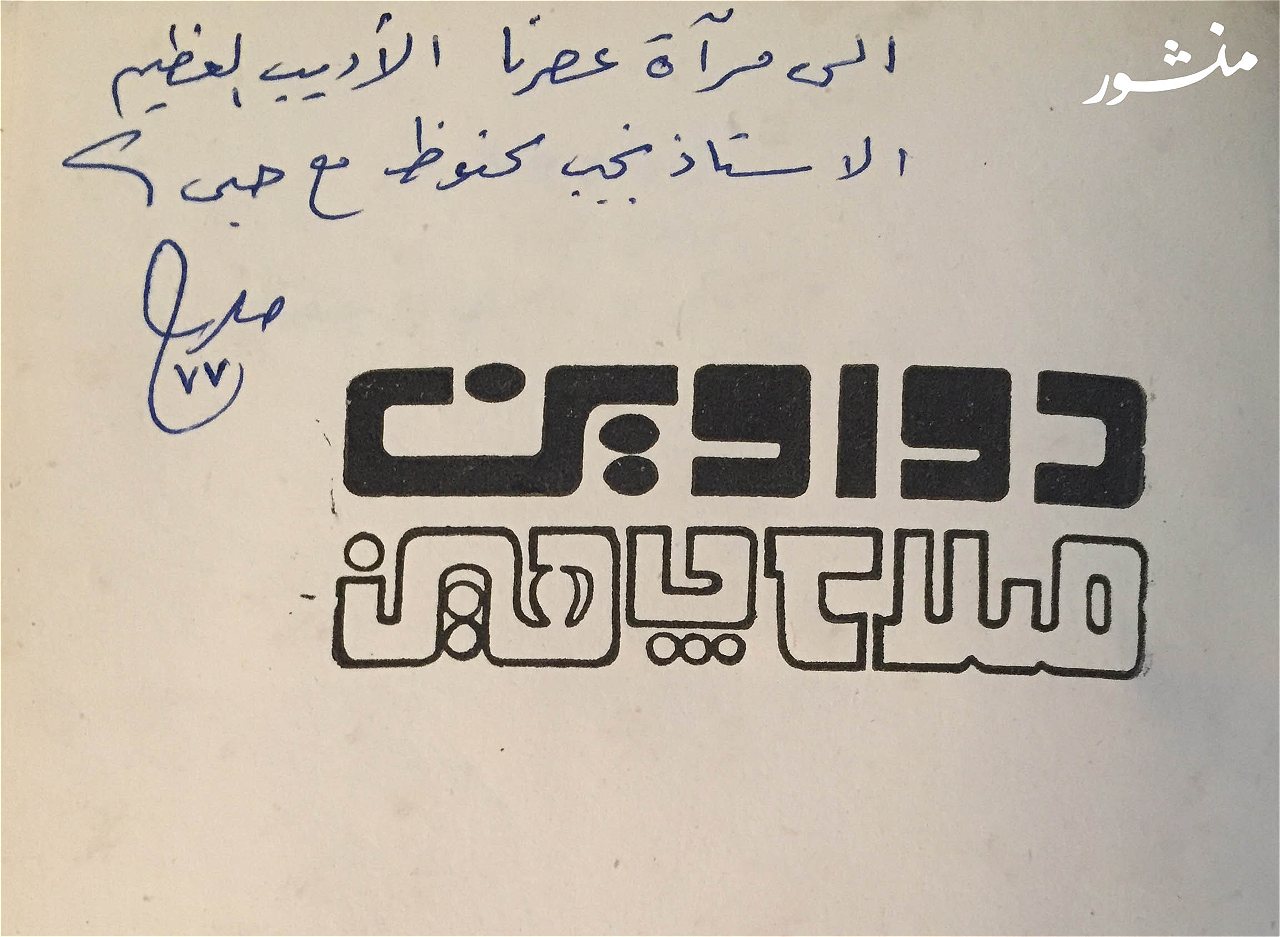 منشور
الى مرآة عصرنا الأديب العظيم
الاستاذ نجيب محفوظ مع حبى
صلاح
٧٧
دواوين
صلاح چاهين